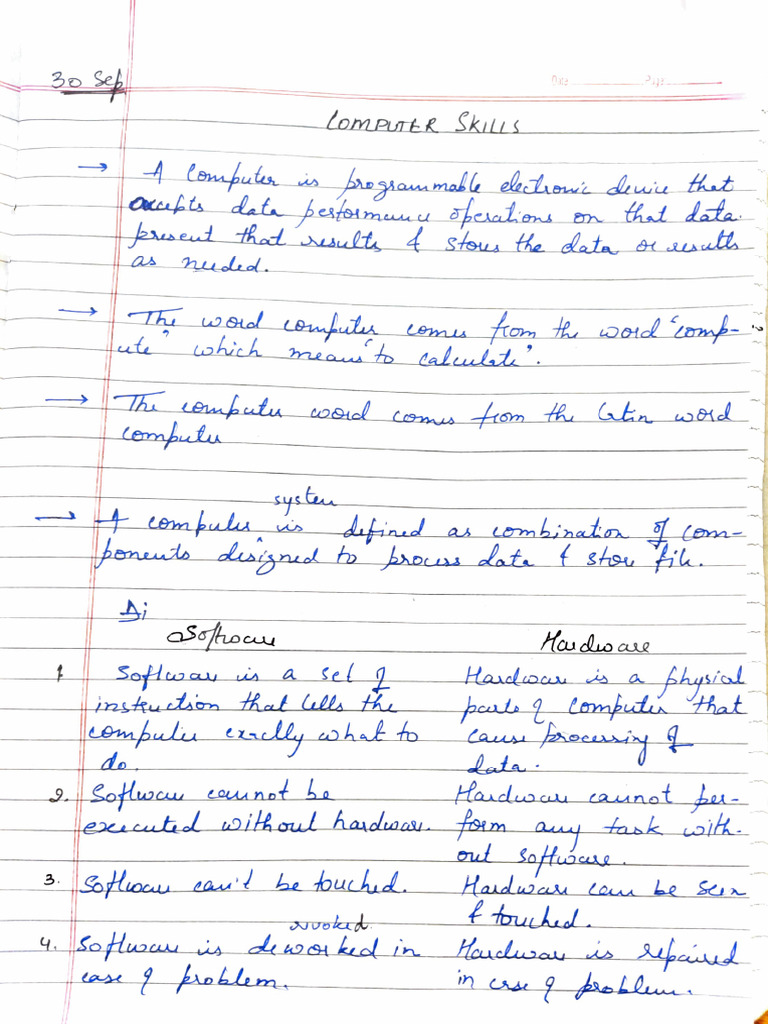 30 Sep
Date Page
COMPUTER SKILLS
→ A computer is programmable electronic device that
accepts data performance operations on that data.
present that results & stores the data or results
as needed.
→ The word computer comes from the word "comp-
ute" which means "to calculate".
→ The computer word comes from the latin word
computer
system
→ A computer is defined as combination of com-
ponents designed to process data & store file.
Di
Software Hardware
1 Software is a set of Hardware is a physical
instruction that tells the parts of computer that
computer exactly what to cause processing of
do. data.
2. Software cannot be Hardware cannot per-
executed without hardware. form any task with-
out software.
3. Software can't be touched. Hardware can be seen
& touched.
revoked
4. Software is deworked in Hardware is repaired
case of problem. in case of problem.